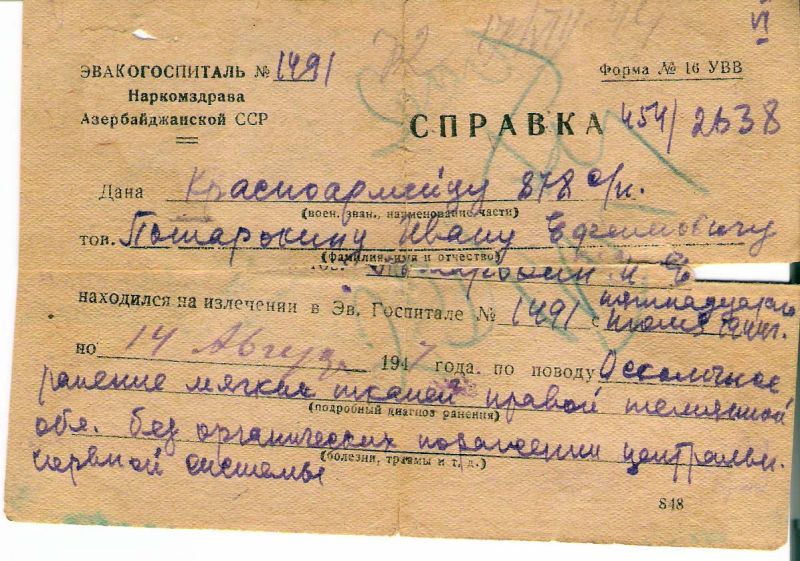 ЭВАКОГОСПИТАЛЬ № 1491
Наркомздрава
Азербайджанской ССР
Форма № 16 УВВ
СПРАВКА 454/2638
Дана Красноармейцу 878 с/п.
(воен. зван., наименование части)
тов. Потарокину Ивану Ефимовичу
(фамилия, имя и отчество)
находился на излечении в Эв. Госпитале № 1491 с пятнадцатого
июля 1944 г.
по 14 Августа 194 года. по поводу Осколочное
ранение мягких тканей правой теменной
(подробный диагноз ранения)
обл. без органических поражении центральн.
(болезни, травмы и т. д.)
нервной системы
848